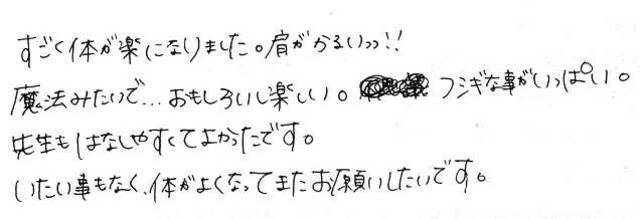 すごく体が楽になりました。肩がかるいっっ!!
魔法みたいで…おもしろいし楽しい。フシギな事がいっぱい。
先生もはなしやすくてよかったです。
いたい事もなく、体がよくなってまたお願いしたいです。